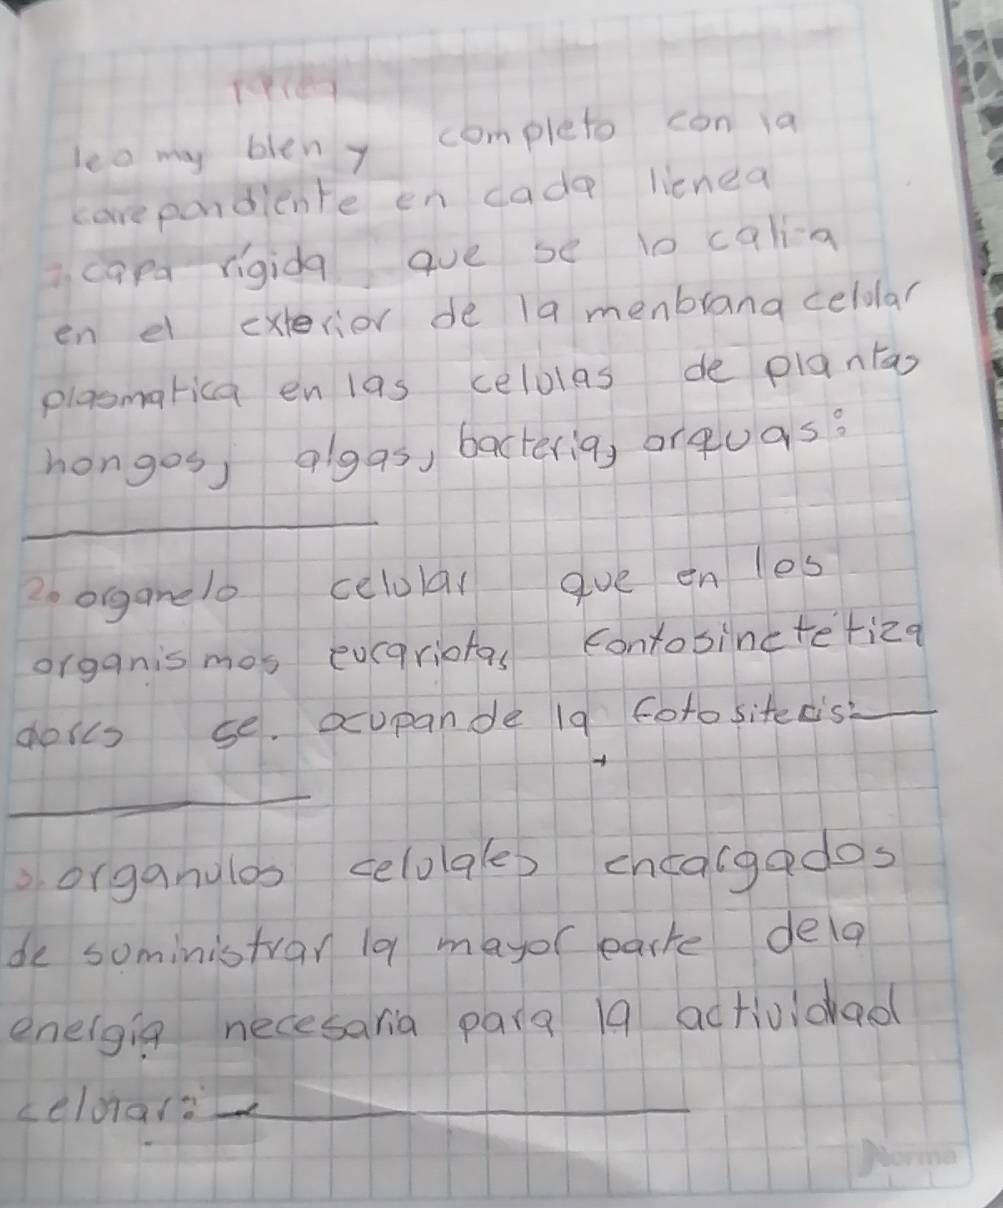 leo my bien y completo con la
corepondiente en cada lienea
1. capa rigida que se lo caliza
en el exterior de la menbrana celular
plasmatica en las celulas de plantas
hongos, algas, bacteria, arquas:
2. organelo celular que en los
organismos eucariotas fontosinctetiza
dores se. ocupan de la fotositecis:
3. organulos celulales encargados
de suministrar la mayor parte dela
energia necesaria para la actividad
celular:
Norma